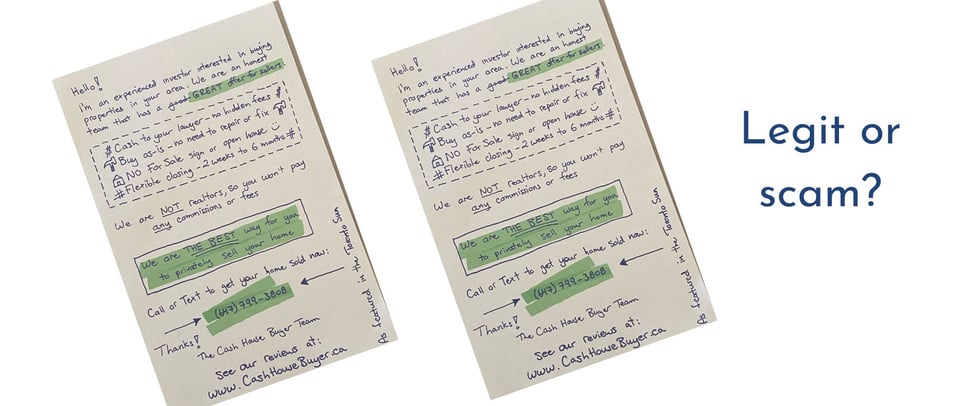 Hello!
I'm an experienced investor interested in buying
properties in your area. We are an honest
team that has a good GREAT offer for sellers:
$ Cash to your lawyer - no hidden fees $
Buy as-is - no need to repair or fix
NO For Sale sign or open house
# Flexible closing - 2 weeks to 6 months #
We are NOT realtors, so you won't pay
any commissions or fees
We are THE BEST way for you
to privately sell your home
Call or Text to get your home sold now:
(647) 799-3808
Thanks!
The Cash House Buyer Team
See our reviews at:
www.CashHouseBuyer.ca
As featured in the Toronto Sun
Hello!
I'm an experienced investor interested in buying
properties in your area. We are an honest
team that has a good GREAT offer for sellers:
$ Cash to your lawyer - no hidden fees $
Buy as-is - no need to repair or fix
NO For Sale sign or open house :)
# Flexible closing - 2 weeks to 6 months #
We are NOT realtors, so you won't pay
any commissions or fees
We are THE BEST way for you
to privately sell your home
Call or Text to get your home sold now:
(647) 799-3808
Thanks!
The Cash House Buyer Team
See our reviews at:
www.CashHouseBuyer.ca
As featured in the Toronto Sun
Legit or
scam?